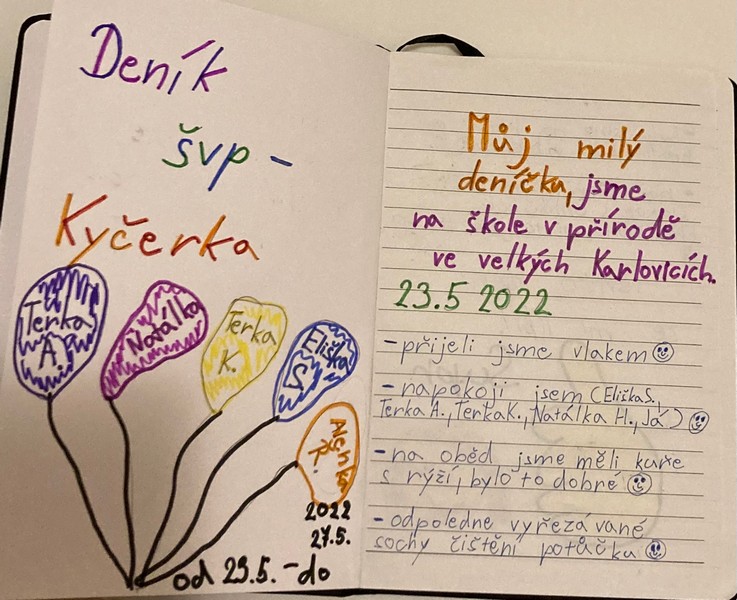 Deník
švp -
Kyčerka
Terka
A.
Natálka
Terka
K.
Eliška
S.
Alenka
P.
2022
27.5.
od 23.5. - do
Můj milý
deníčku, jsme
na škole v přírodě
ve velkých Karlovicích.
23.5 2022
- přijeli jsme vlakem
- napokoji jsem (EliškaS.,
Terka A., TerkaK., Natálka H., Já)
- na oběd jsme měli kuře
s rýží, bylo to dobré
- odpoledne vyřezávané
sochy čištění potůčku